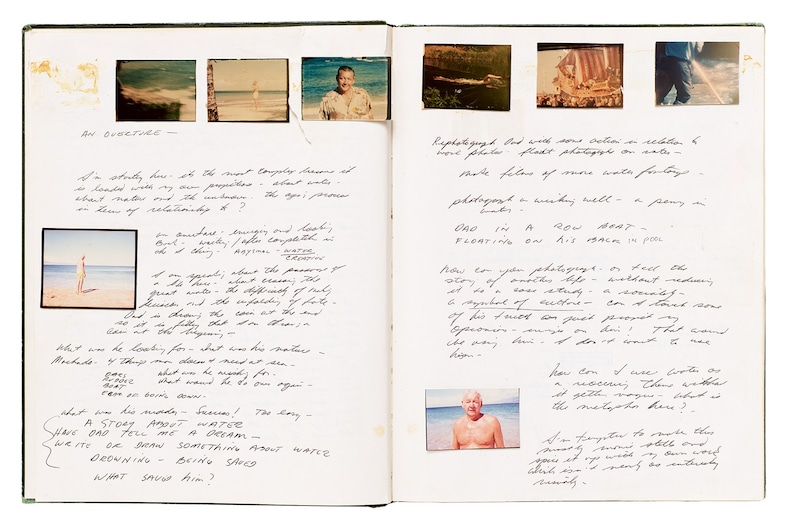 AN OVERTURE —
I'm starting here - it's the most complex because it
is loaded with my own projections - about water -
about nature and the unknown. the aging process
in terms of relationship to ?
an overture - emerging and looking
Back - waiting / after completion is
ABYSMAL - WATER
CREATIVE
If I am speaking about the passage of
a life here - about crossing the
great water - the difficulty of
and the unfolding of fate -
Dad is throwing the coin at the end
so it is fitting that I am throwing a
Coin at the beginning -
What was he looking for - what was his nature -
Machado - 4 things man doesn't need at sea -
OARS what was he wishing for -
RUDDER what would he do over again -
BOAT
FEAR OF GOING DOWN -
what was his - Success! Too easy -
A STORY ABOUT WATER
HAVE DAD TELL ME A DREAM —
WRITE OR DRAW SOMETHING ABOUT WATER
DROWNING - BEING SAVED
WHAT SAVED HIM?
Rephotograph Dad with some action in relation to
more photos - float photograph on water -
make films of more water footage -
photograph a wishing well - a penny in
water -
DAD IN A ROW BOAT -
FLOATING ON HIS BACK IN POOL
How can you photograph - or tell the
story of another life - without reducing
it to a case study - a sociology -
a symbol of culture - can I touch some
of his truth or just project my
opinions - on him! That would
be using him - I don't want to use
him -
How can I use water as
a reoccuring theme without
it getting vague - what is
the metaphor here?
I'm forgetting to make this
mostly movie stills and
spice it up with my own work
which isn't nearly as interesting
visually -